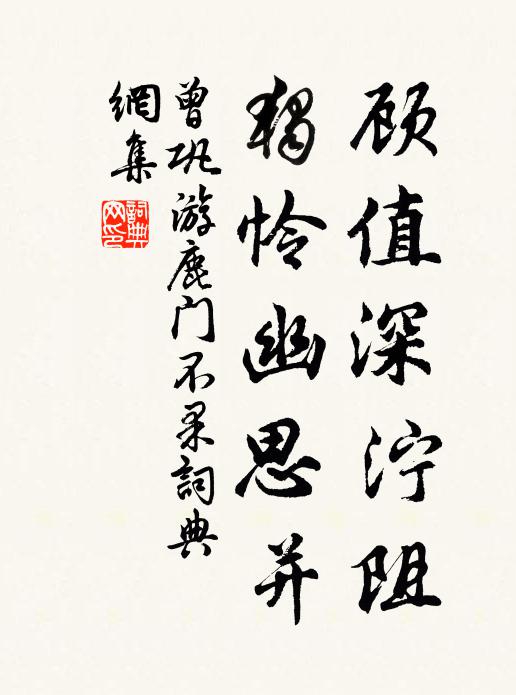 顾值深泞阻
独怜幽思并
曾巩游鹿门不果詞典
網集
詞典
网印